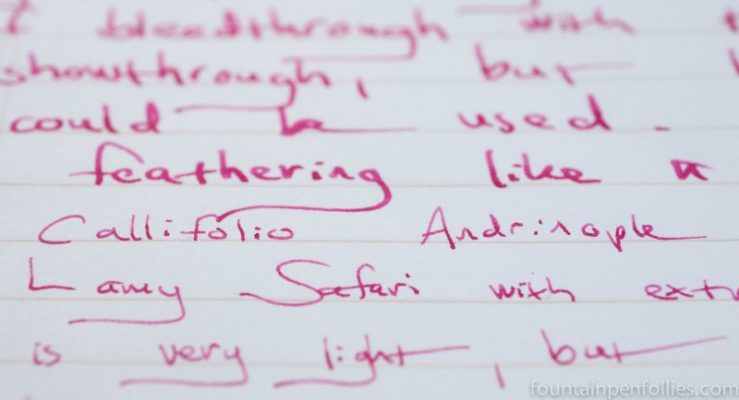 bleedthrough with
showthrough, but
could be used.
feathering like a
Callifolio Andrinople
Lamy Safari with extr
is very light, but
fountainpenfollies.com